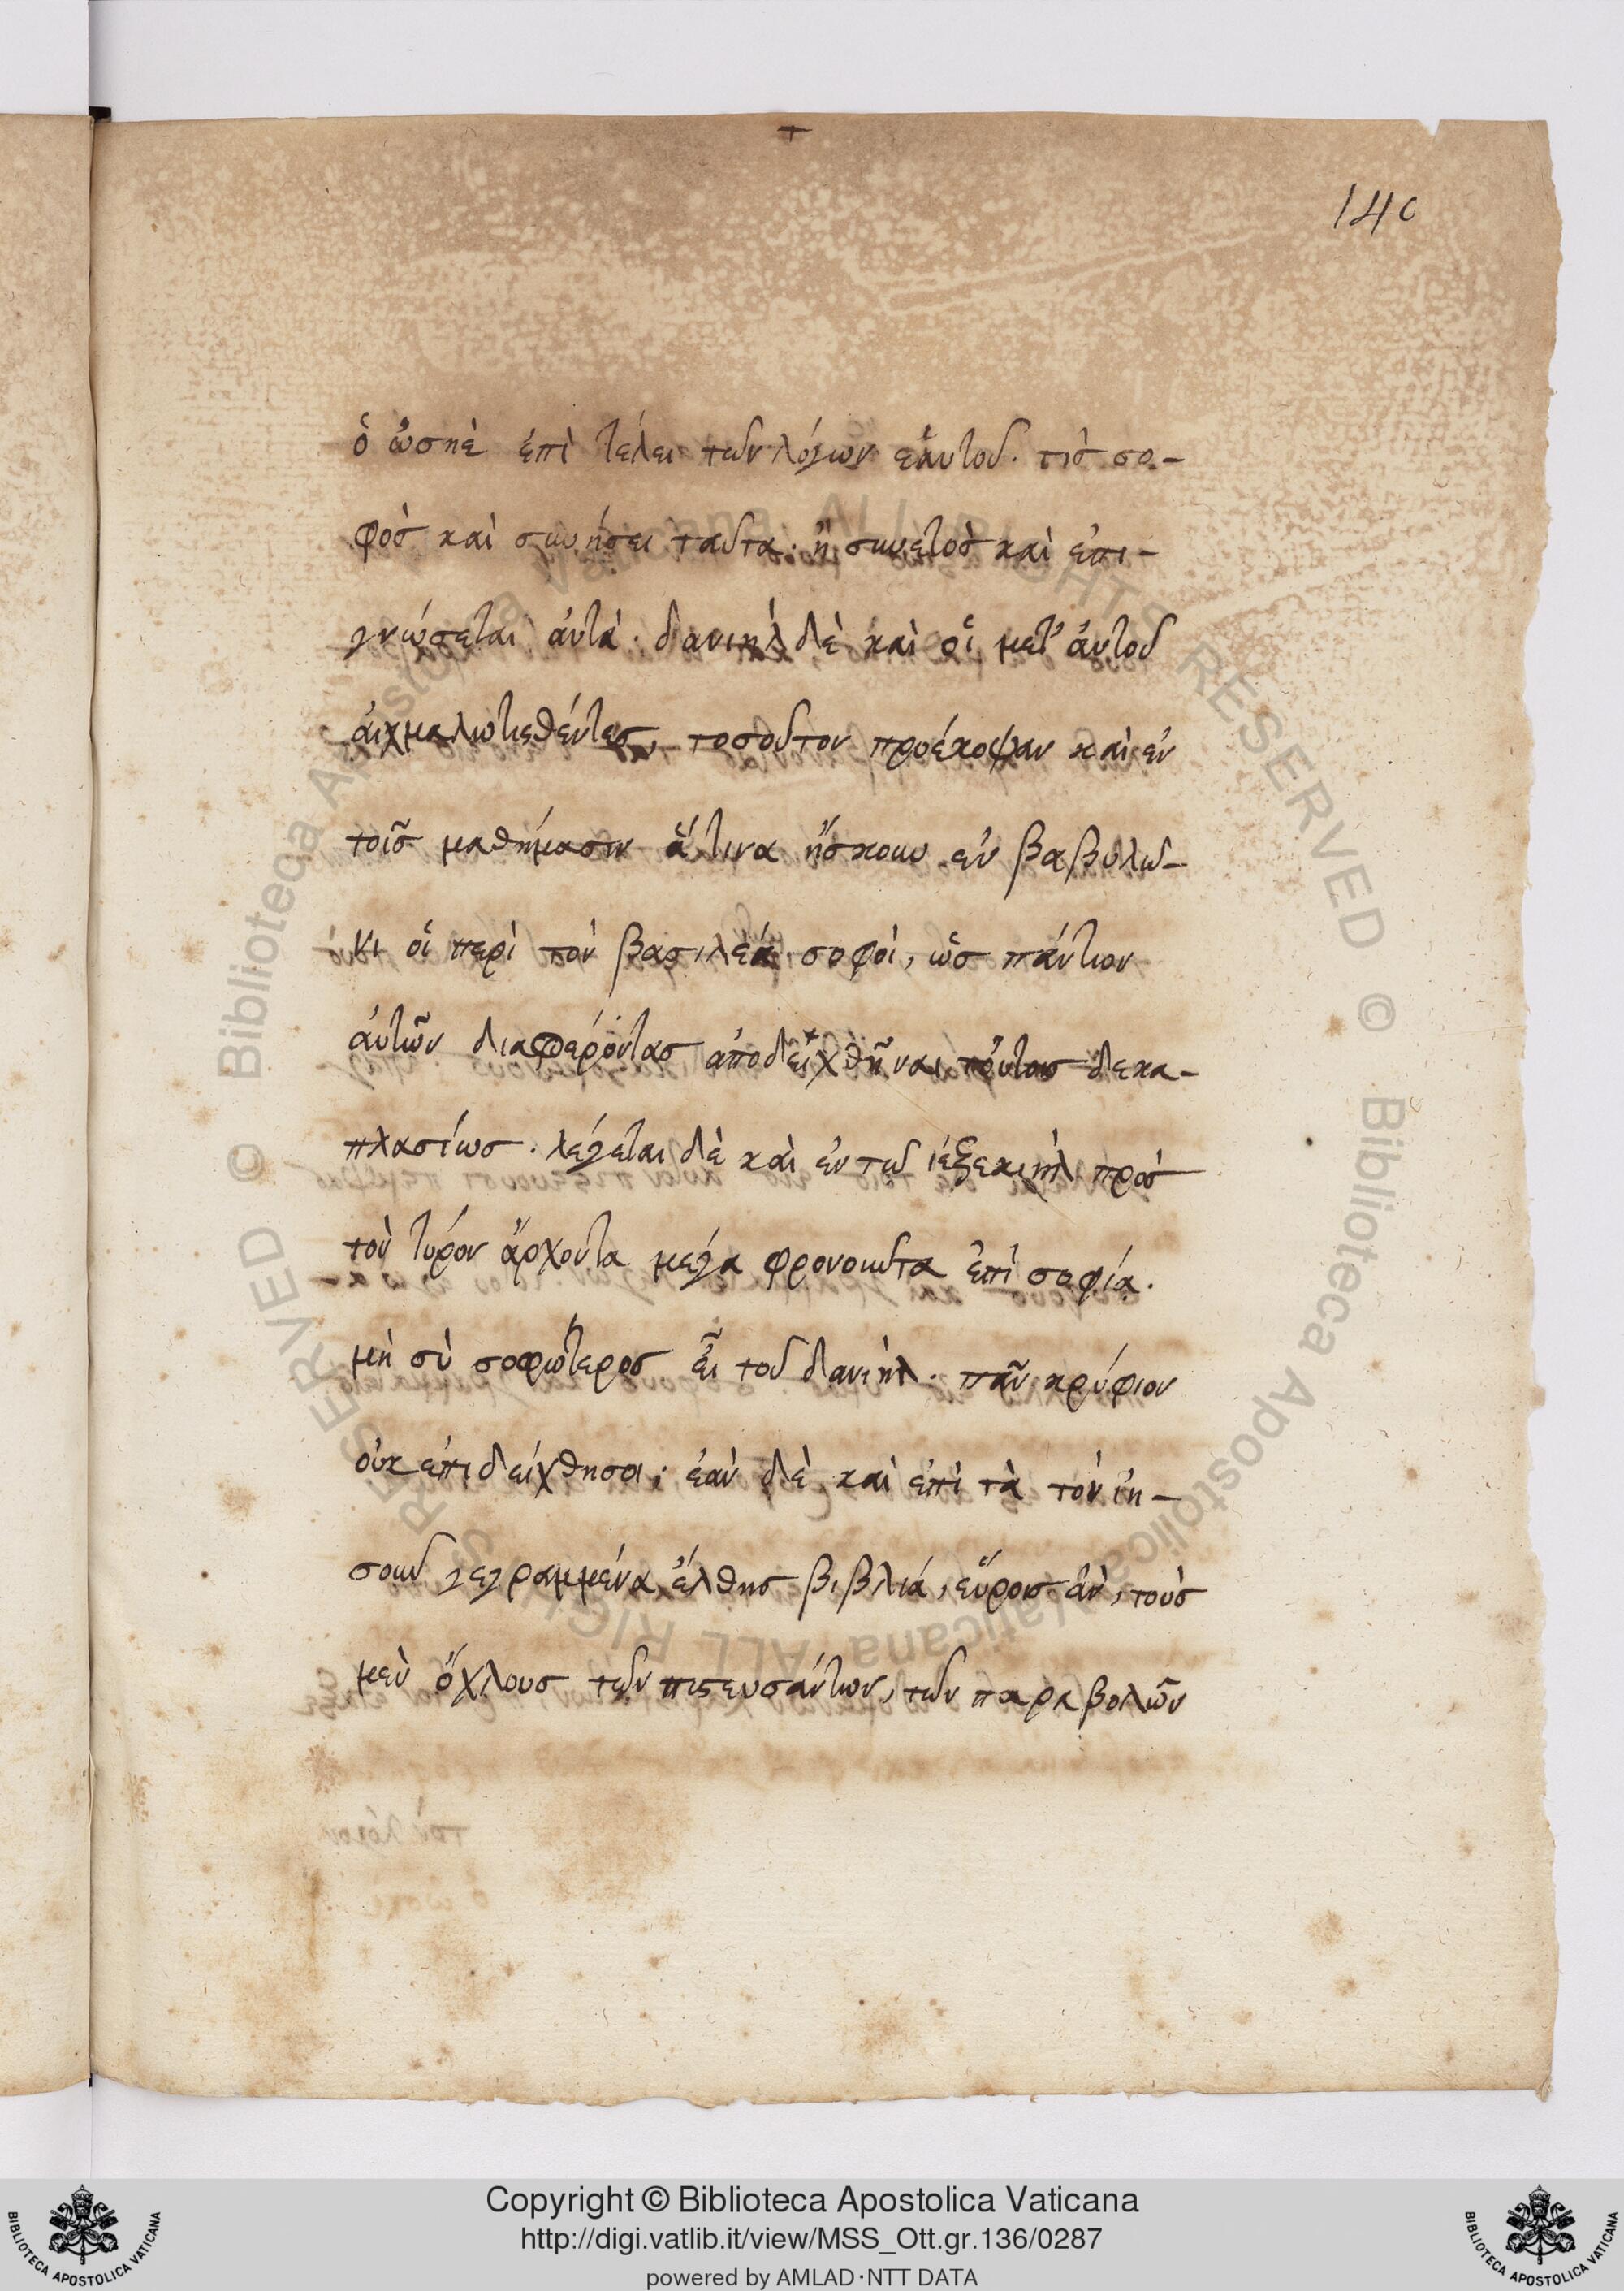 140
ὁ ὠσηὲ ἐπὶ τέλει τῶν λόγων ἑαυτοῦ. τίς σο-
φὸς καὶ συνήσει ταῦτα. ἢ συνετὸς καὶ ἐπι-
γνώσεται ἀυτὰ. δανιὴλ δὲ καὶ οἱ μετ' ἀυτοῦ
ἀιχμαλωτισθέντες, τοσοῦτον προέκοψαν καὶ ἐν
τοῖς μαθήμασιν ἅτινα ἤσκουν ἐν βαβυλῶ-
νι οἱ περὶ τὸν βασιλέα σοφοὶ, ὡς πάντων
ἀυτῶν διαφέροντας ἀποδειχθῆναι τούτους δεκα-
πλασίως. λέγεται δὲ καὶ ἐν τῷ ἰεζεκιὴλ πρὸς
τὸν τύρου ἄρχοντα μέγα φρονοῦντα ἐπὶ σοφία.
μὴ σὺ σοφώτερος εἶ τοῦ δανιὴλ. πᾶν κρύφιον
οὐκ ἐπιδείχθη σοι; ἐὰν δὲ καὶ ἐπὶ τὰ τὸν ἰη-
σοῦν γεγραμμένα ἔλθης βιβλιά, εὕροις ἂν, τοὺς
μὲν ὄχλους τῶν πιστευσάντων, τῶν παραβολῶν
Copyright © Biblioteca Apostolica Vaticana
http://digi.vatlib.it/view/MSS_Ott.gr.136/0287
powered by AMLAD·NTT DATA
BIBLIOTECA APOSTOLICA VATICANA
BIBLIOTECA APOSTOLICA VATICANA
© Biblioteca Apostolica Vaticana ALL RIGHTS RESERVED © Biblioteca Apostolica Vaticana ALL RIGHTS RESERVED